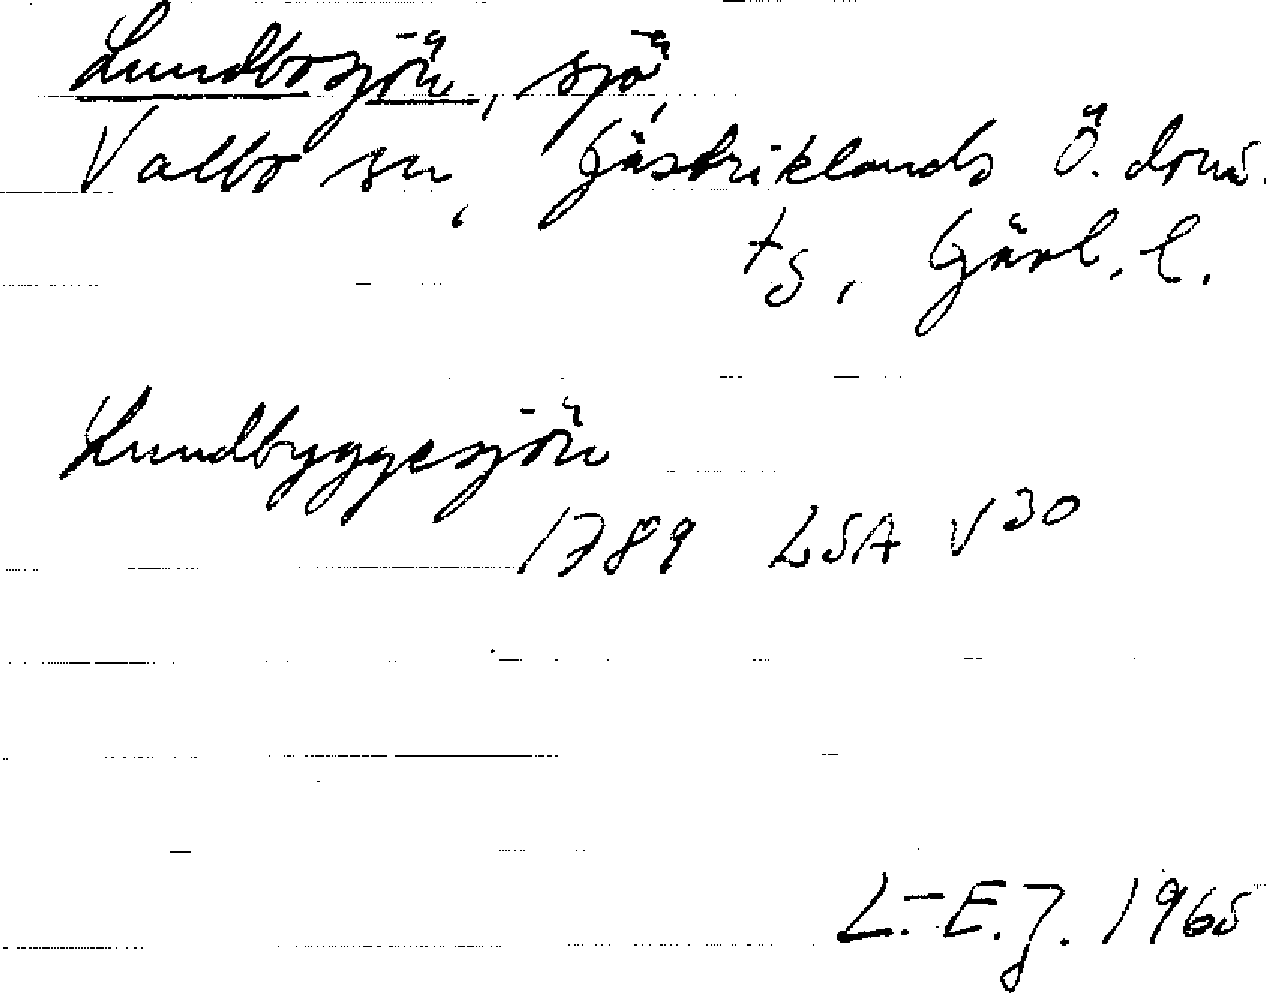 Lundbosjön, sjö,
Valbo sn, Gästriklands Ö. doms.
tg, Gävl. l.
Lundbyggesjön
1789 LSA V30
L.-E.J. 1965